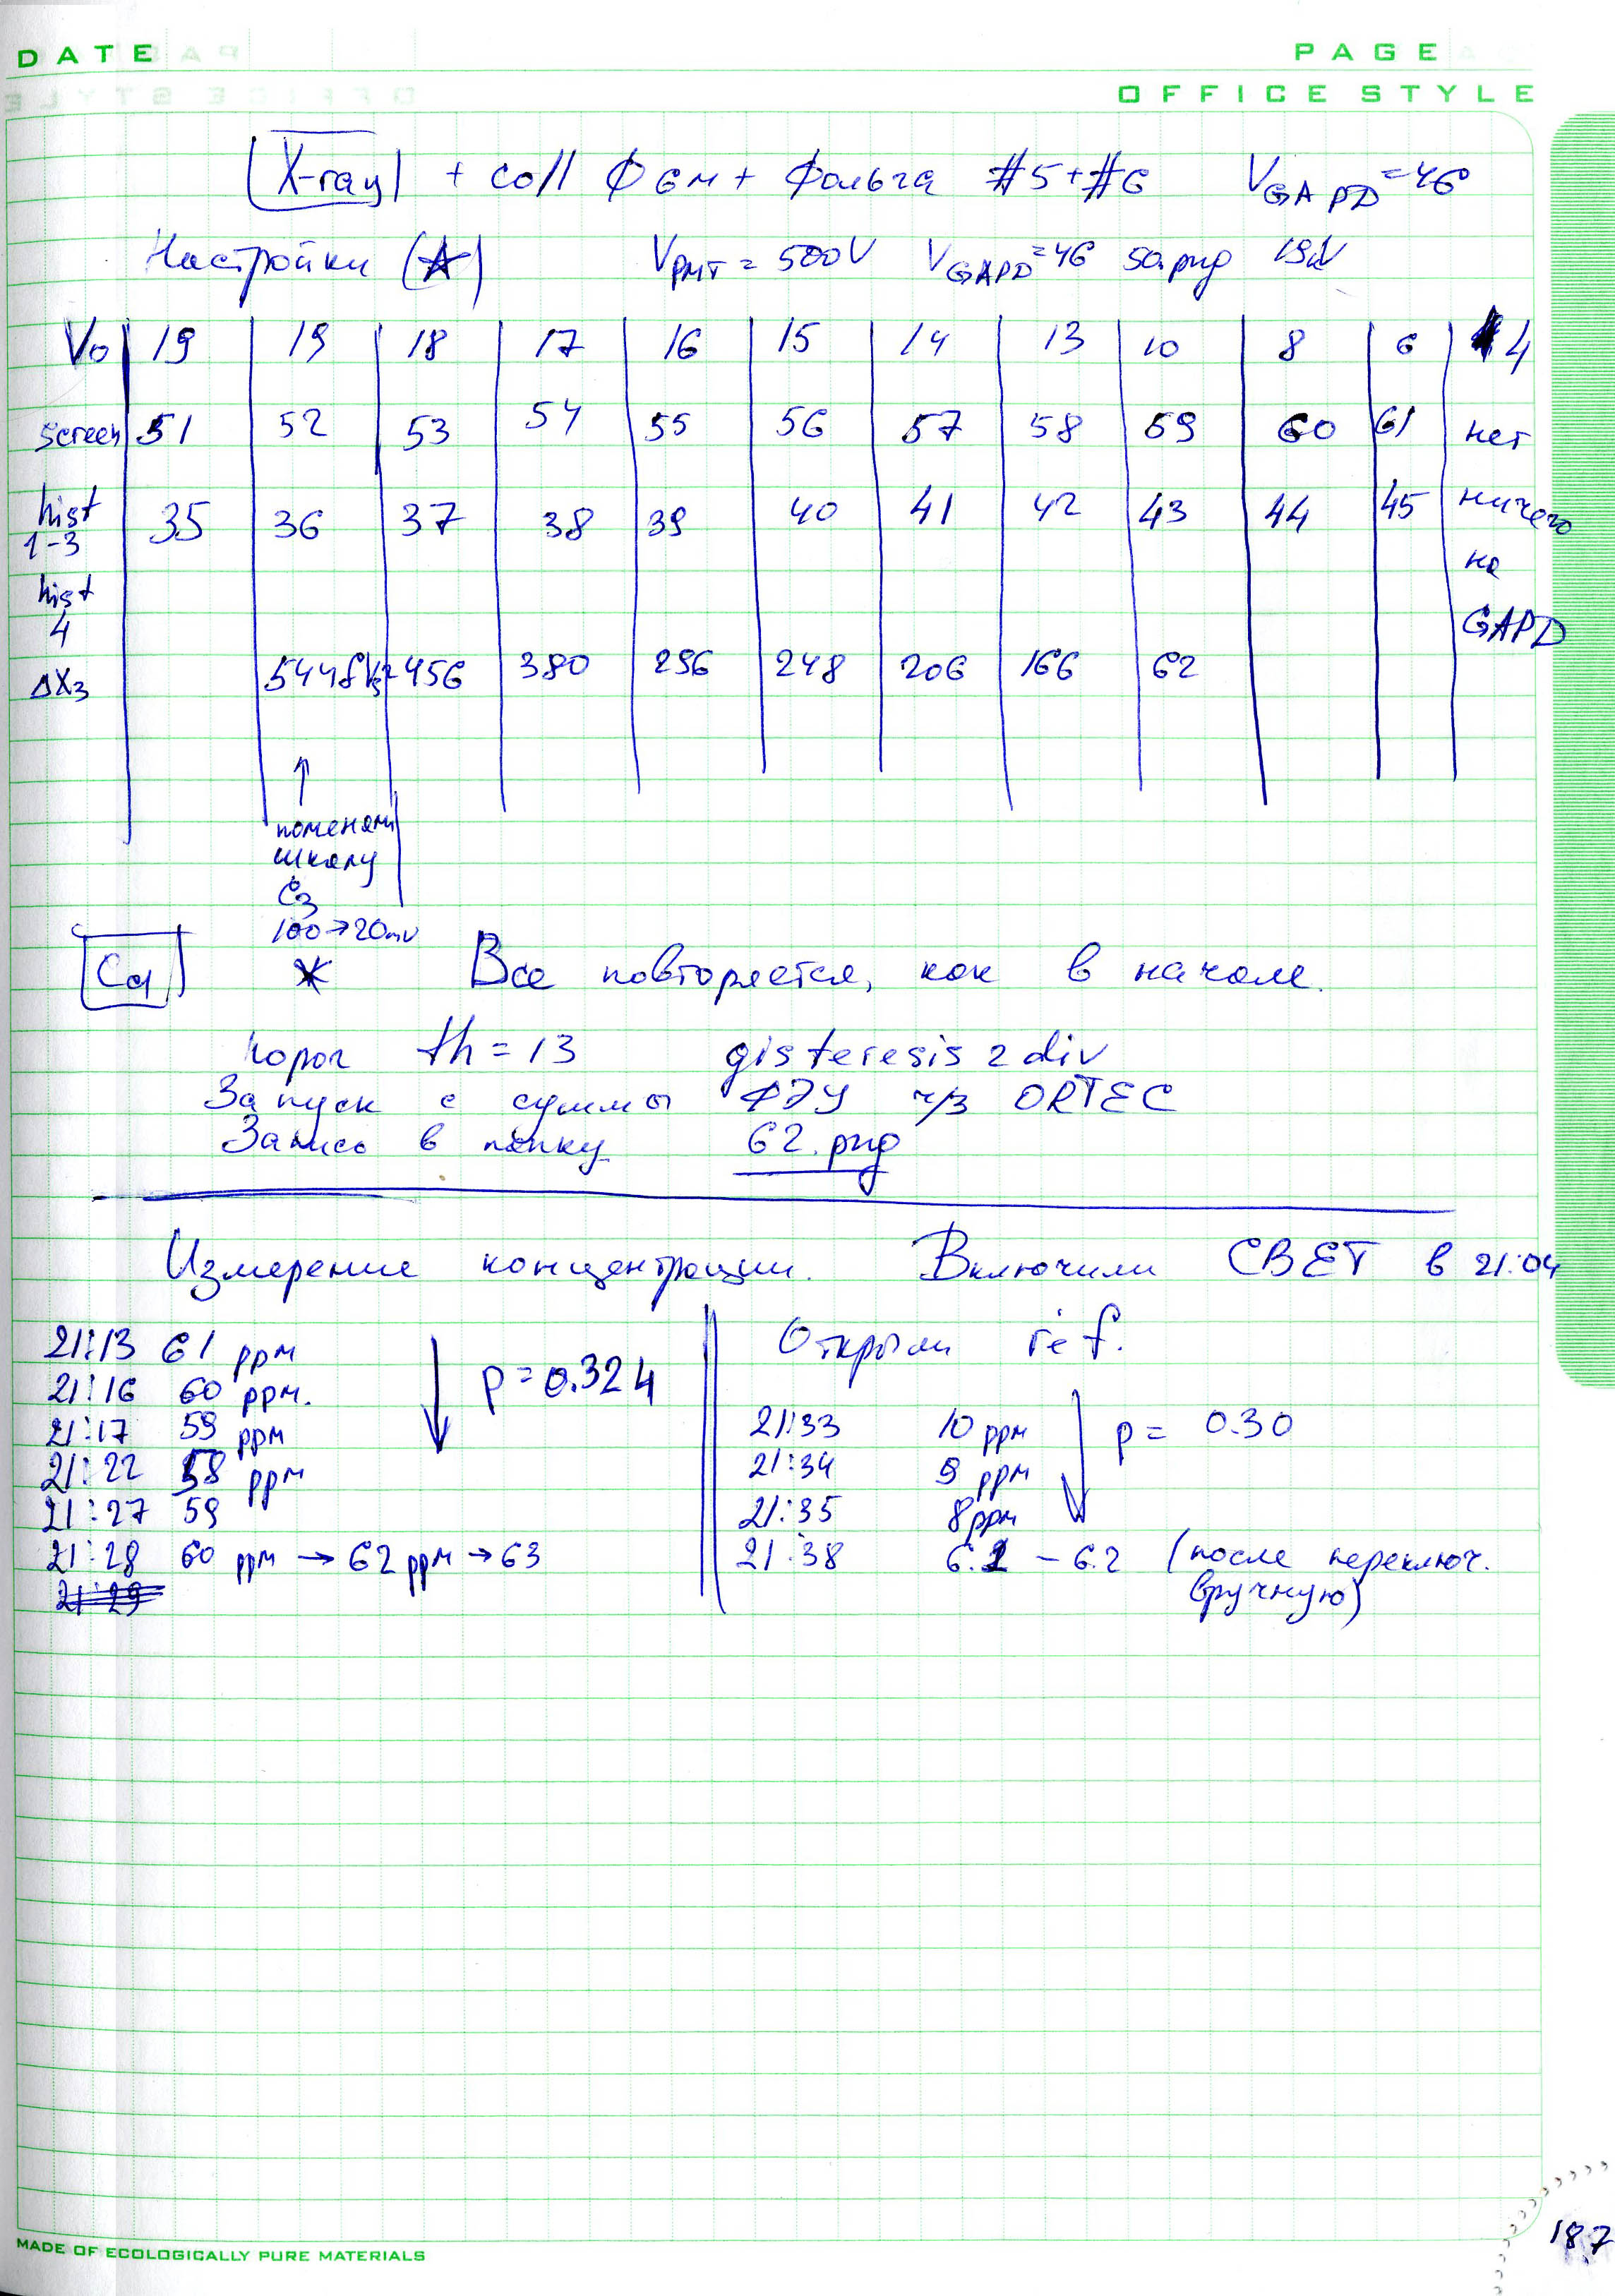 DATE
PAGE
OFFICE STYLE
X-ray + coll Ф 6 м + Фольга #5+#6 V GAPD = 46
Настройки (☆) V PMT = 500V V GAPD = 46 50.png 19kV
V₀ 19 19 18 17 16 15 14 13 10 8 6 4
screen 51 52 53 54 55 56 57 58 59 60 61 нет
hist 1-3 35 36 37 38 39 40 41 42 43 44 45 ничего
на
hist 4 GAPD
ΔX₃ 544 456 380 296 248 206 166 62
↑
поменяли
шкалу
C₃
100→20mv
Cd * Все повторяется, как в начале.
порог th = 13 gisteresis 2 div
Запуск с суммы ФЭУ ч/з ORTEC
Запись в папку 62.png
Измерение концентрации. Включили СВЕТ в 21:04
21:13 61 ppm
21:16 60 ppm.
21:17 59 ppm
21:22 58 ppm
21:27 59
21:28 60 ppm → 62 ppm → 63
21:29
↓ p = 0.324
Открыли ref.
21:33 10 ppm
21:34 9 ppm
21:35 8 ppm
21:38 6.1 – 6.2 (после переключ.
вручную)
↓ p = 0.30
MADE OF ECOLOGICALLY PURE MATERIALS
187